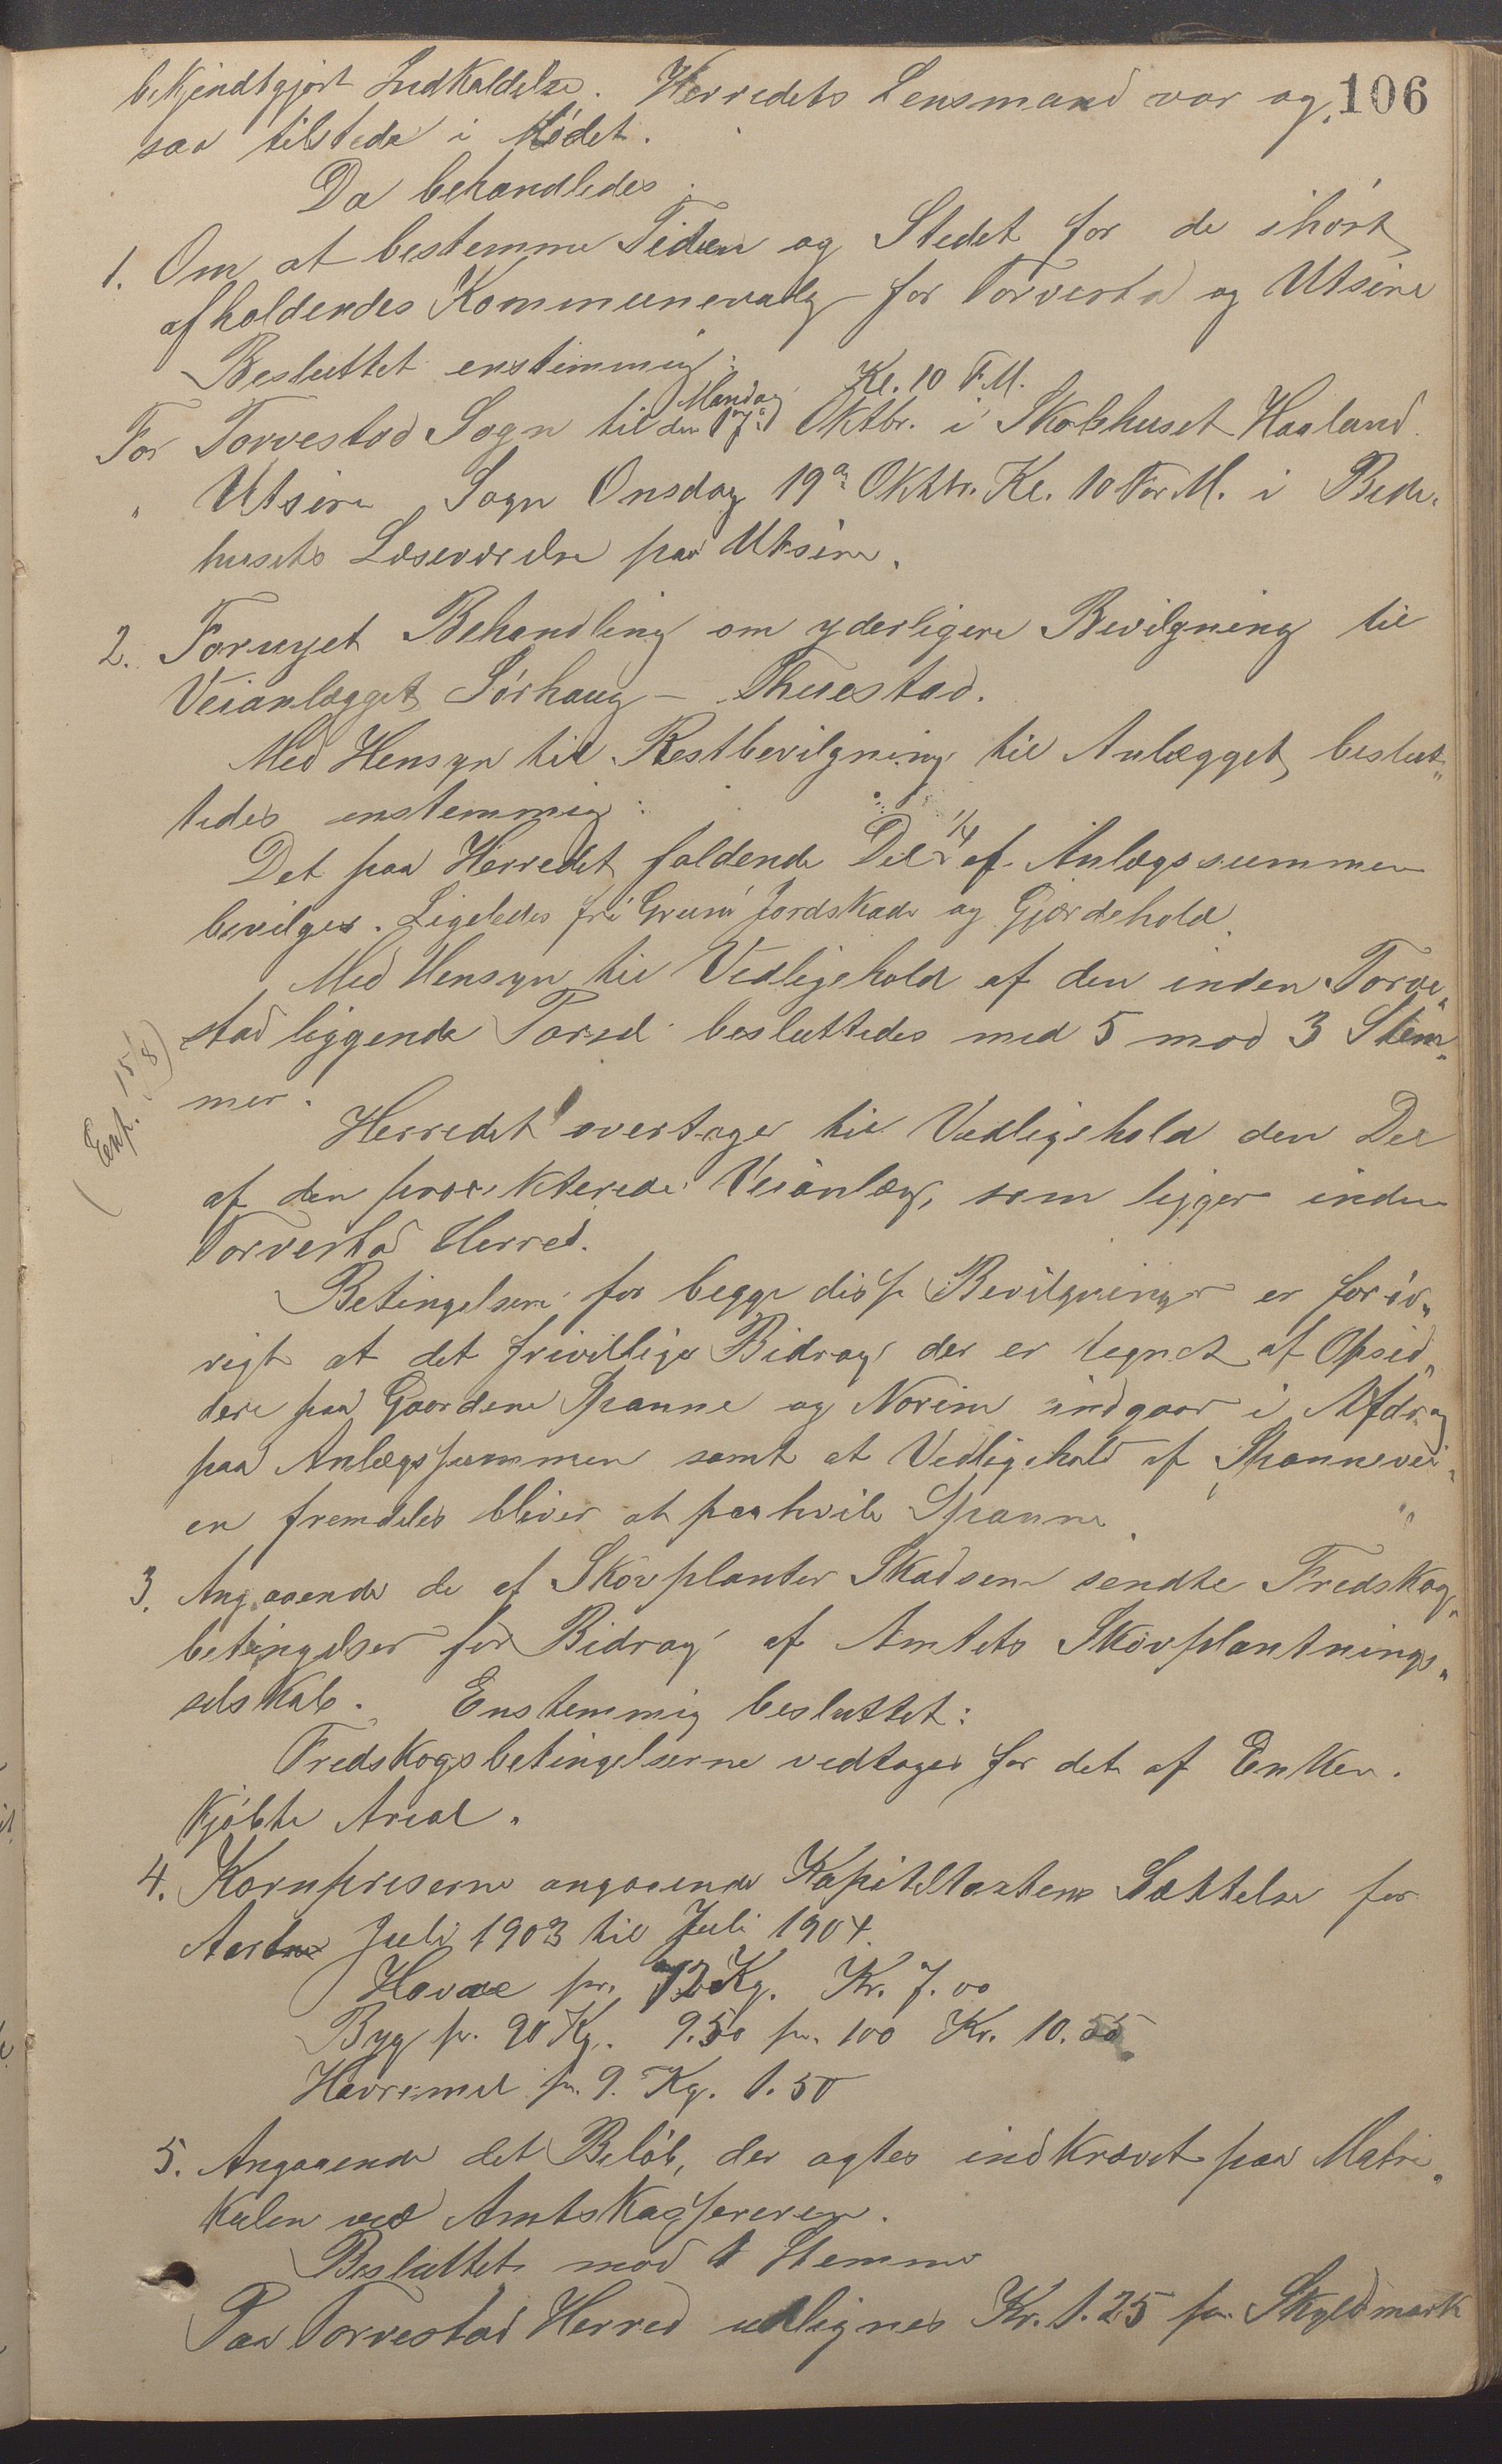 106
bekjendtgjort Indkaldelse. Herredets Lensmand var og,
saa tilstede i Mødet.
Da behandledes:
1. Om at bestemme Tiden og Stedet for de ihøst
afholdendes Kommunevalg for Torvestad og Utsire
Besluttet enstemmig:
For Torvestad Sogn til Mandag den 17de Oktbr. Kl. 10 F.M. i Skolehuset Haaland.
" Utsire Sogn Onsdag 19de Oktbr. Kl. 10 For M. i Bede-
husets Læseværelse paa Utsire.
2. Fornyet Behandling om yderligere Bevilgning til
Veianlægget Sørhaug – Thuestad.
Med Hensyn til Restbevilgning til Anlægget beslut-
tedes enstemmig:
Det paa Herredet faldende Del 1/4 af Anlægssummen
bevilges. Ligeledes fri Grund Jordskade og Gjærdehold.
Med Hensyn til Vedligehold af den inden Torve-
stad liggende Parsel besluttedes med 5 mod 3 Stem-
mer.
(Exp. 15/8)
Herredet overtager til Vedligehold den Del
af den projekterede Veianlæg, som ligger inden
Torvestad Herred.
Betingelsen for begge disse Bevilgninger er forøv-
rigt at det frivillige Bidrag der er tegnet af Opsid-
dere paa Gaardene Spanne og Norim indgaar i Afdrag
paa Anlægssummen samt at Vedligehold af Spannevei-
en fremdeles bliver at paahvile Spanne.
3. Angaaende de af Skovplanter Skadsem sendte Fredskog-
betingelser for Bidrag af Amtets Skovplantnings-
selskab. Enstemmig besluttet:
Fredskogsbetingelserne vedtages for det af Enken
kjøbte Areal.
4. Kornpriserne angaaende Kapiteltaxtens Sættelse for
Aaret Juli 1903 til Juli 1904.
Havre pr. 72 Kg. Kr. 7.00
Byg pr. 90 Kg. 9.50 pr. 100 Kr. 10.55
Havremel pr. 9. Kg. 1.50
5. Angaaende det Beløb, der agtes indkrævet paa Matri-
kulen ved Amtskassereren.
Besluttet mod 1 Stemme
Paa Torvestad Herred udlignes Kr. 1.25 pr. Skyldmark